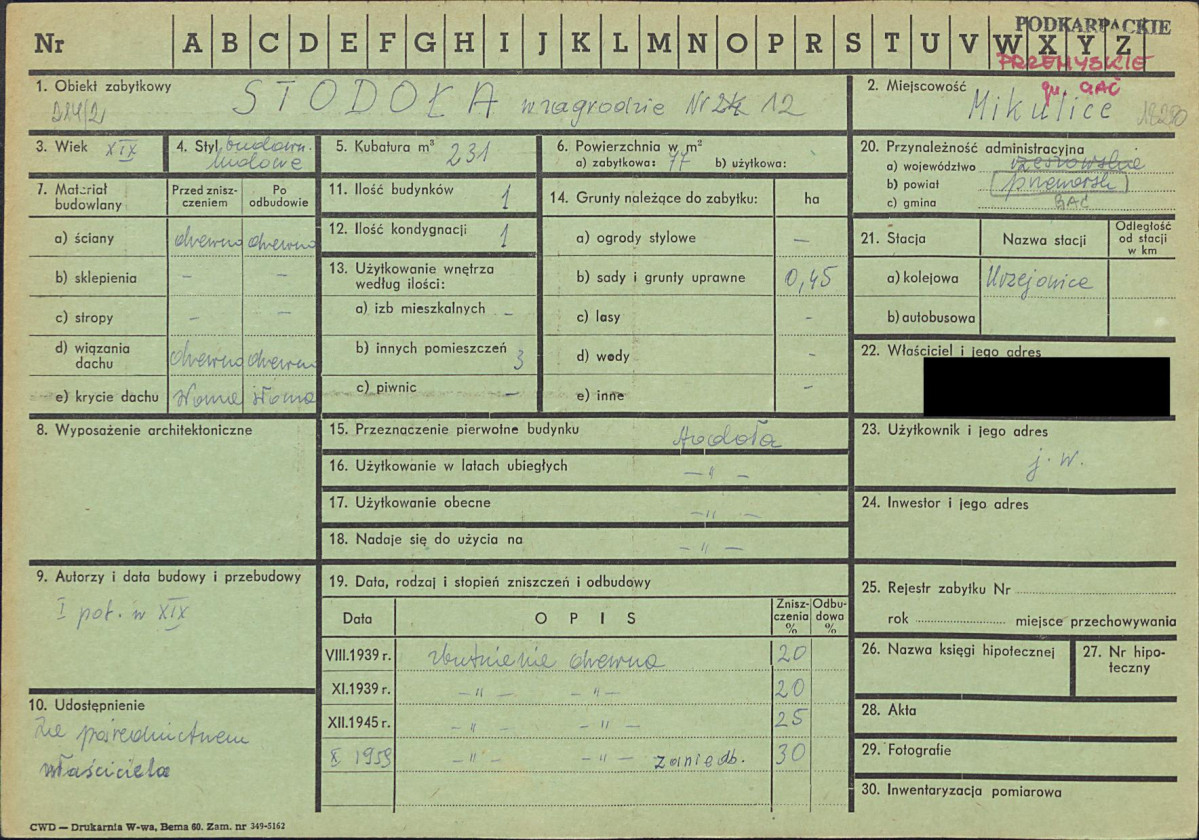 PODKARPACKIE
Nr A B C D E F G H I J K L M N O P R S T U V W X Y Z
PRZEMYSKIE
gm. GAĆ
1. Obiekt zabytkowy
224/2
STODOŁA w zagrodzie Nr 12
2. Miejscowość
Mikulice
3. Wiek XIX
4. Styl budown. ludowe
5. Kubatura m³ 231
6. Powierzchnia w m²
a) zabytkowa: 77 b) użytkowa:
20. Przynależność administracyjna
a) województwo rzeszowskie
b) powiat przeworsk
c) gmina GAĆ
7. Materiał budowlany
Przed zniszczeniem
Po odbudowie
a) ściany drewno drewno
b) sklepienia - -
c) stropy - -
d) wiązania dachu drewno drewno
e) krycie dachu słoma słoma
11. Ilość budynków 1
12. Ilość kondygnacji 1
13. Użytkowanie wnętrza według ilości:
a) izb mieszkalnych -
b) innych pomieszczeń 3
c) piwnic -
14. Grunty należące do zabytku: ha
a) ogrody stylowe -
b) sady i grunty uprawne 0,45
c) lasy -
d) wody -
e) inne -
21. Stacja
Nazwa stacji
Odległość od stacji w km
a) kolejowa Urzejowice
b) autobusowa
22. Właściciel i jego adres
8. Wyposażenie architektoniczne
15. Przeznaczenie pierwotne budynku stodoła
16. Użytkowanie w latach ubiegłych - " -
17. Użytkowanie obecne - " -
18. Nadaje się do użycia na - " -
23. Użytkownik i jego adres
j. w.
24. Inwestor i jego adres
9. Autorzy i data budowy i przebudowy
I poł. w XIX
19. Data, rodzaj i stopień zniszczeń i odbudowy
Data OPIS Zniszczenia % Odbudowa %
VIII.1939 r. zbutnienie drewna 20
XI.1939 r. - " - - " - 20
XII.1945 r. - " - - " - 25
X 1959 - " - - " - zaniedb. 30
25. Rejestr zabytku Nr
rok miejsce przechowywania
26. Nazwa księgi hipotecznej
27. Nr hipoteczny
28. Akta
29. Fotografie
30. Inwentaryzacja pomiarowa
10. Udostępnienie
Za pośrednictwem
właściciela
CWD — Drukarnia W-wa, Bema 60. Zam. nr 349-5162